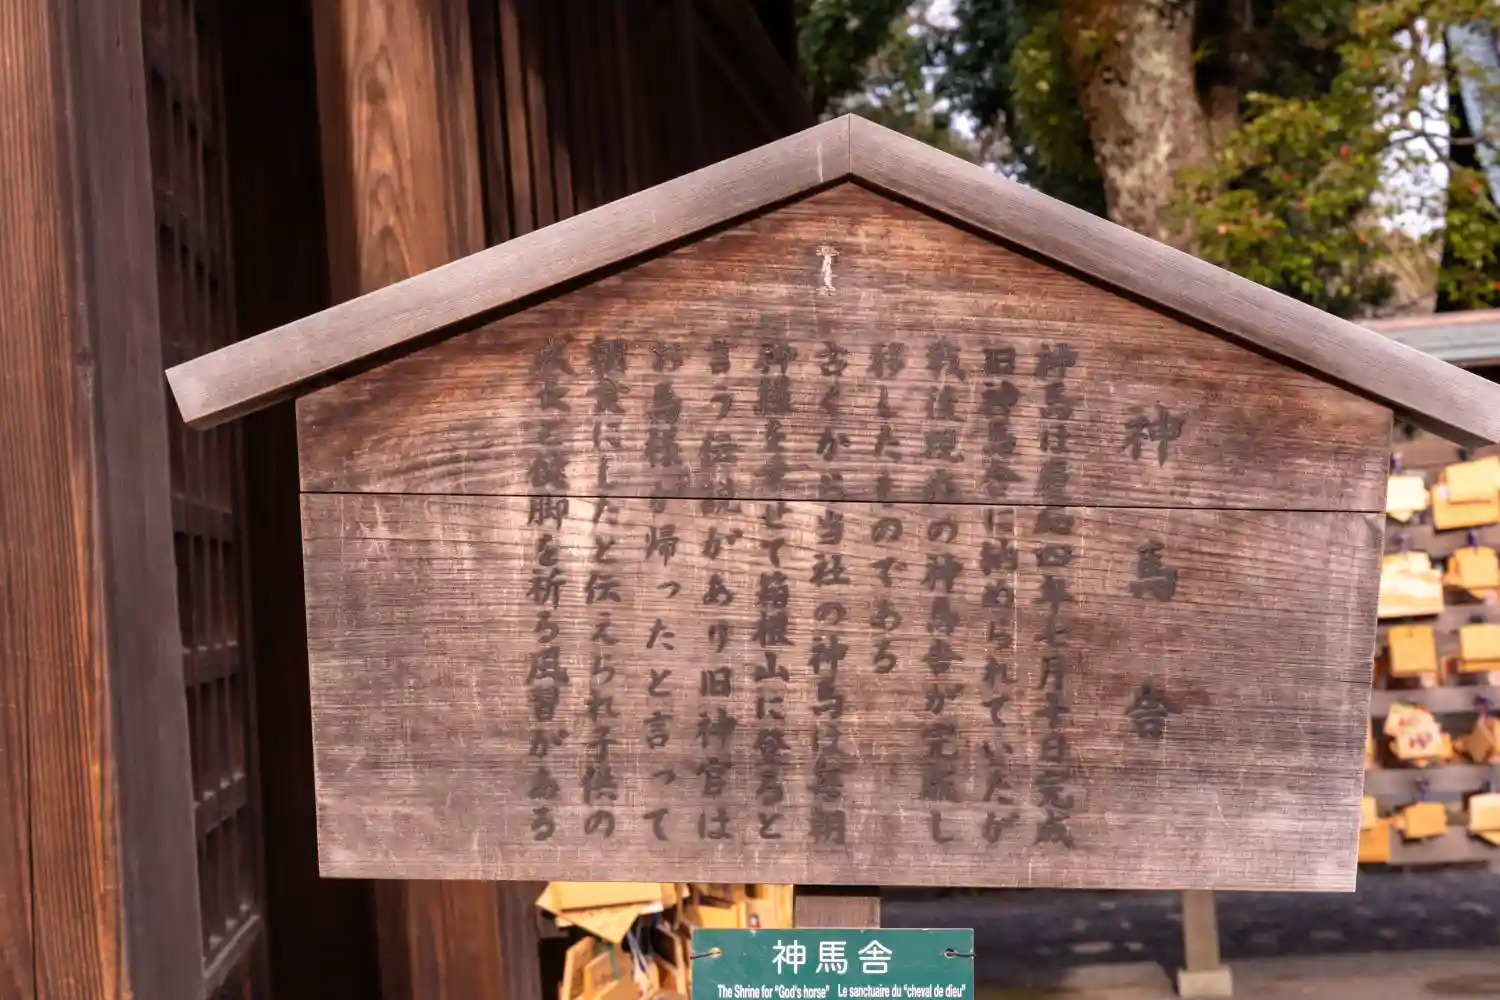 神馬舎
神馬は慶応四年七月十日完成
旧神馬舎に納められていたが
戦後現在の神馬舎が完成し
移したものである
古くから当社の神馬は毎朝
神様を乗せて箱根山に登ると
言う伝説があり旧神官は
お馬様が帰ったと言って
朝食にしたと伝えられ子供の
成長と健脚を祈る風習がある
神馬舎
The Shrine for "God's horse" Le sanctuaire du "cheval de dieu"